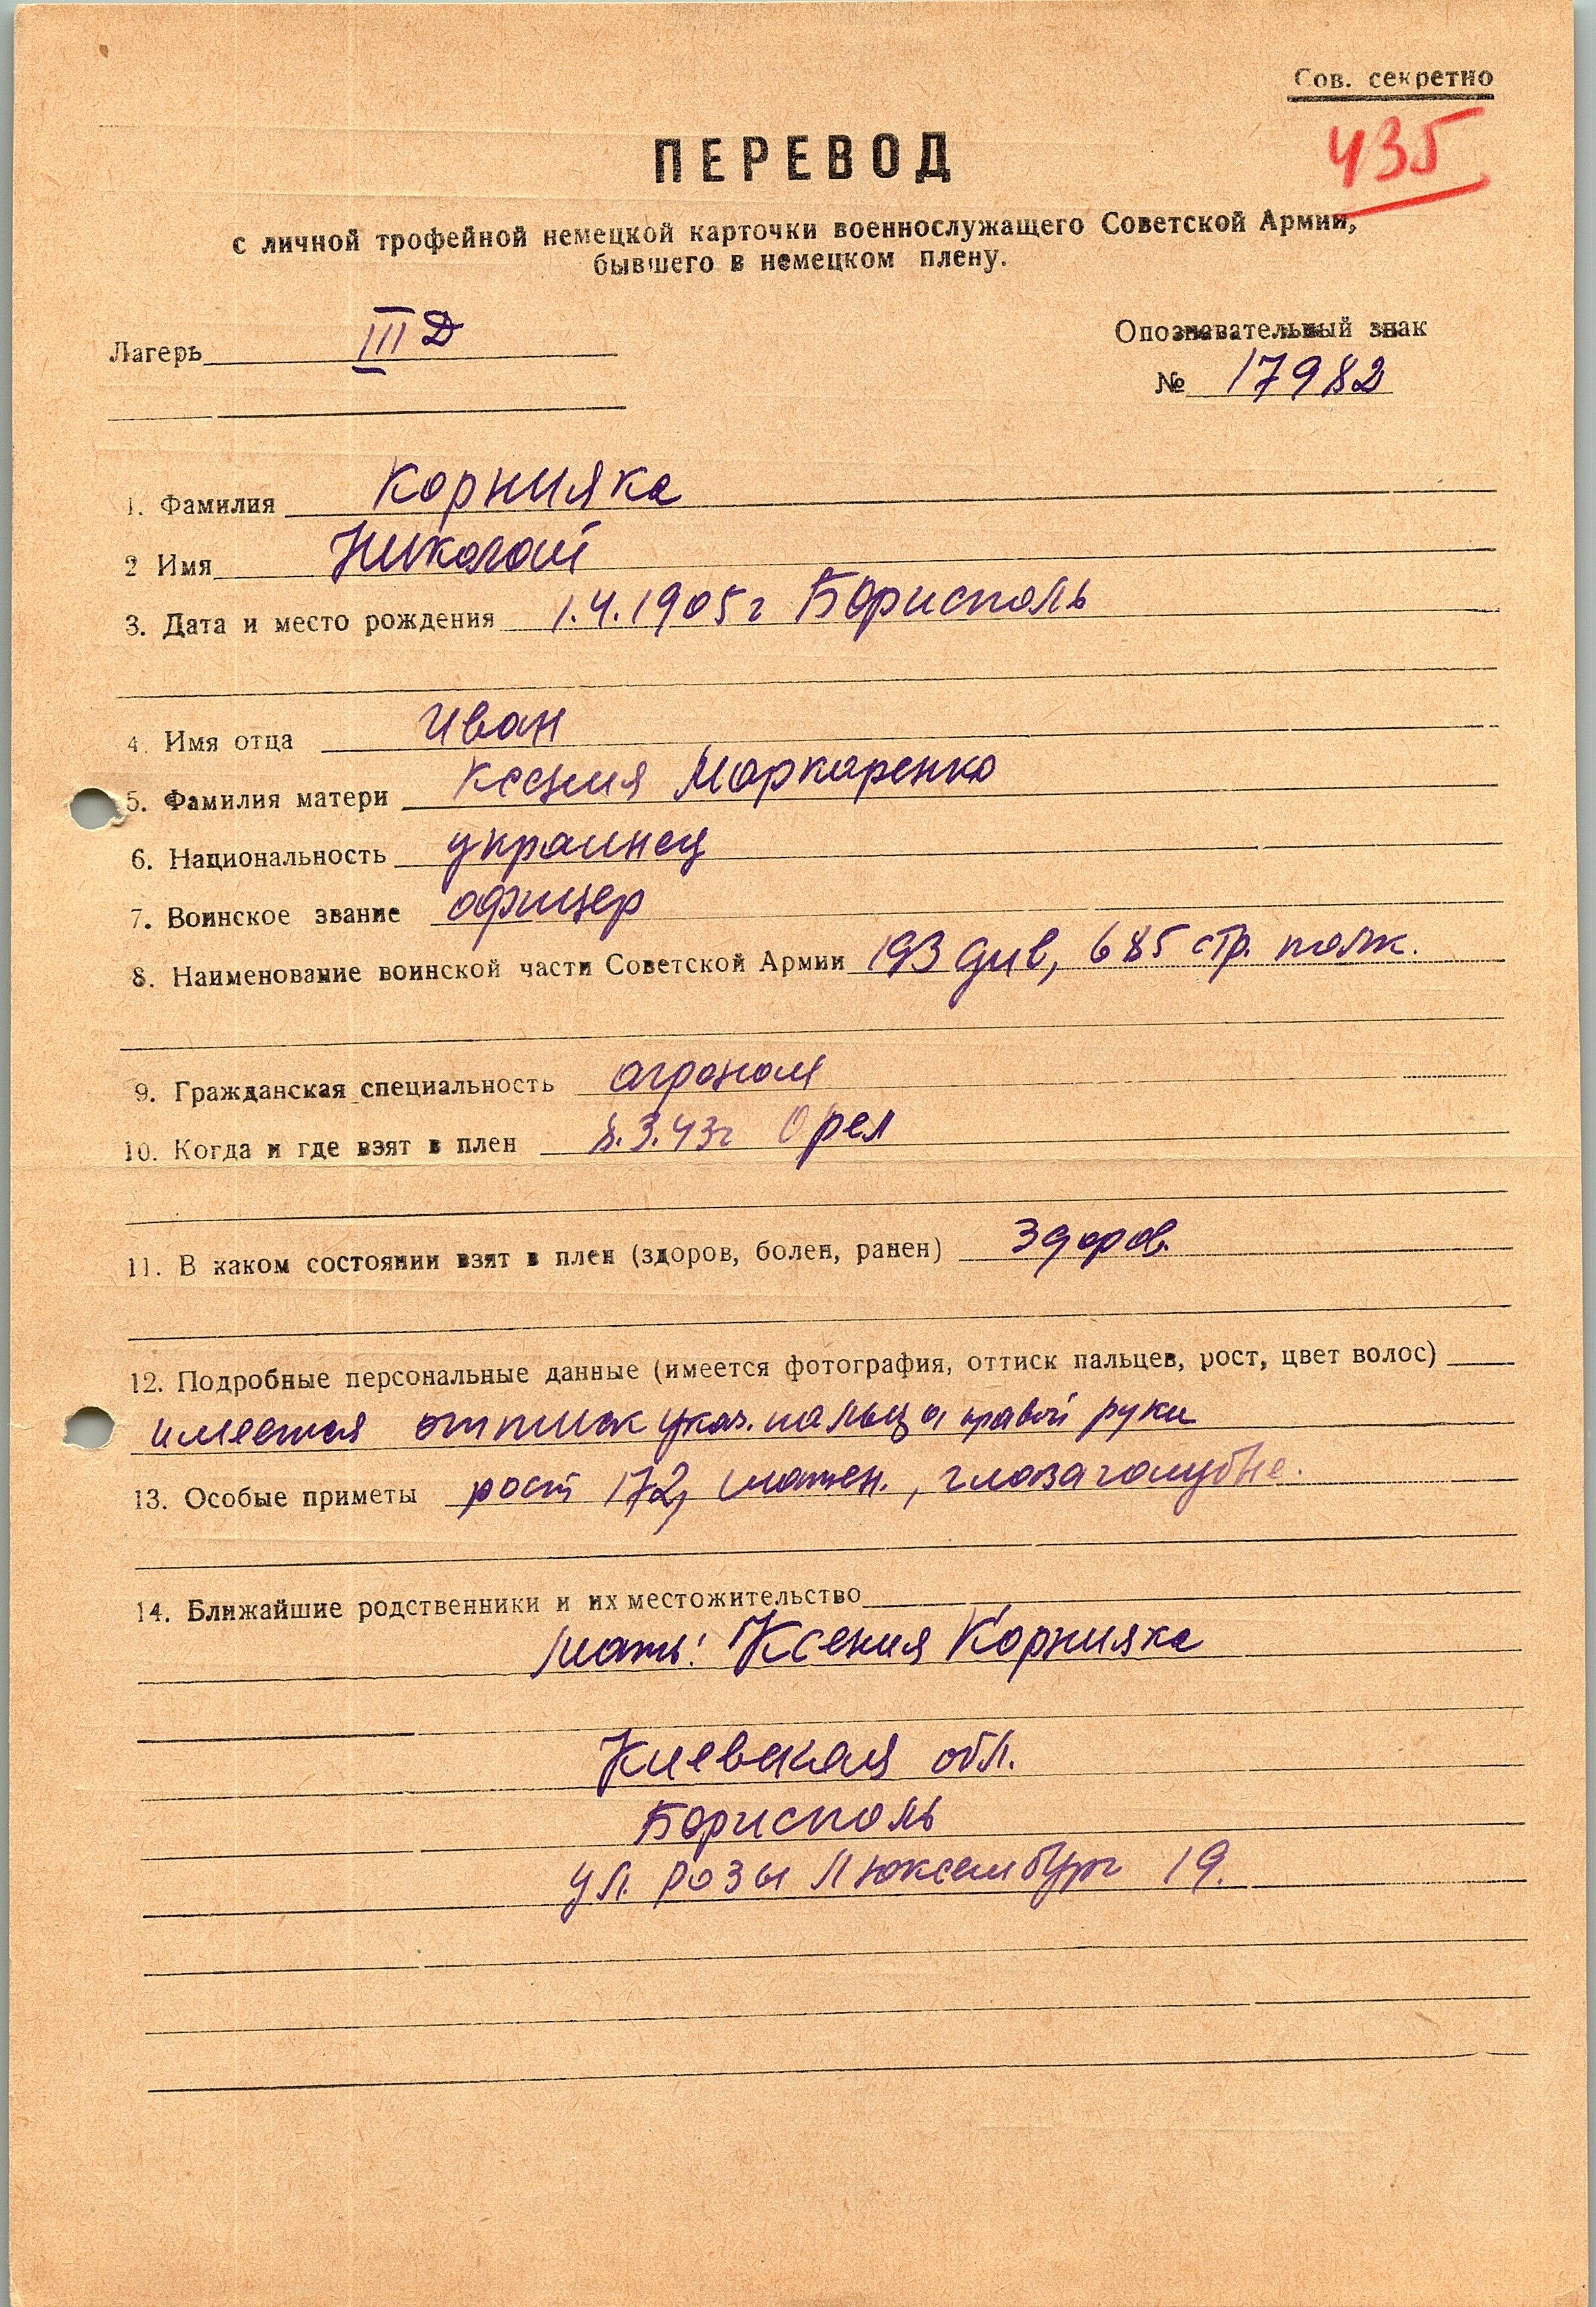 Сов. секретно
435
ПЕРЕВОД
с личной трофейной немецкой карточки военнослужащего Советской Армии,
бывшего в немецком плену.
Лагерь III Д
Опознавательный знак
№ 17982
1. Фамилия Корнияка
2 Имя Николай
3. Дата и место рождения 1.4.1905г Борисполь
4. Имя отца Иван
5. Фамилия матери Ксения Маркаренко
6. Национальность украинец
7. Воинское звание офицер
8. Наименование воинской части Советской Армии 193 див, 685 стр. полк.
9. Гражданская специальность агроном
10. Когда и где взят в плен 8.3.43г Орел
11. В каком состоянии взят в плен (здоров, болен, ранен) здоров.
12. Подробные персональные данные (имеется фотография, оттиск пальцев, рост, цвет волос)
имеется оттиск указ. пальца правой руки
13. Особые приметы рост 172, шатен., глаза голубые.
14. Ближайшие родственники и их местожительство
мать: Ксения Корнияка
Киевская обл.
Борисполь
ул. Розы Люксембург 19.